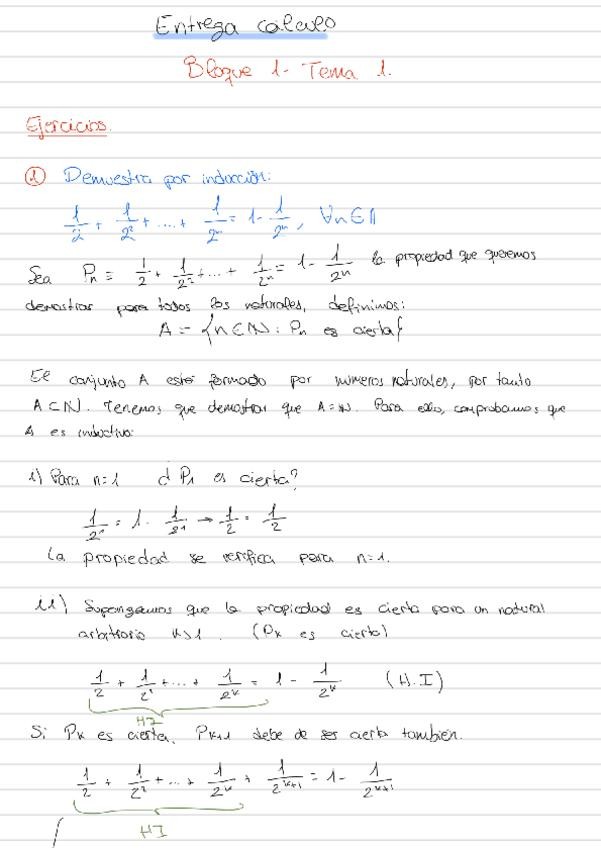 Entrega cálculo
Bloque 1- Tema 1.
Ejercicios.
① Demuestra por inducción:
1/2 + 1/2² + .... + 1/2ⁿ = 1 - 1/2ⁿ, ∀n∈ℕ
Sea Pₙ = 1/2 + 1/2² + ... + 1/2ⁿ = 1 - 1/2ⁿ la propiedad que queremos
demostrar para todos los naturales, definimos:
A = {n∈ℕ : Pₙ es cierta}
El conjunto A está formado por números naturales, por tanto
A⊂ℕ. Tenemos que demostrar que A=ℕ. Para ello, comprobamos que
A es inductivo:
i) Para n=1 ¿P₁ es cierta?
1/2¹ = 1 - 1/2¹ → 1/2 = 1/2
La propiedad se verifica para n=1.
ii) Supongamos que la propiedad es cierta para un natural
arbitrario k>1. (Pₖ es cierta)
1/2 + 1/2² + ... + 1/2ᵏ = 1 - 1/2ᵏ (H.I)
HI
Si Pₖ es cierta, Pₖ₊₁ debe de ser cierta también.
1/2 + 1/2² + ... + 1/2ᵏ + 1/2ᵏ⁺¹ = 1 - 1/2ᵏ⁺¹
HI